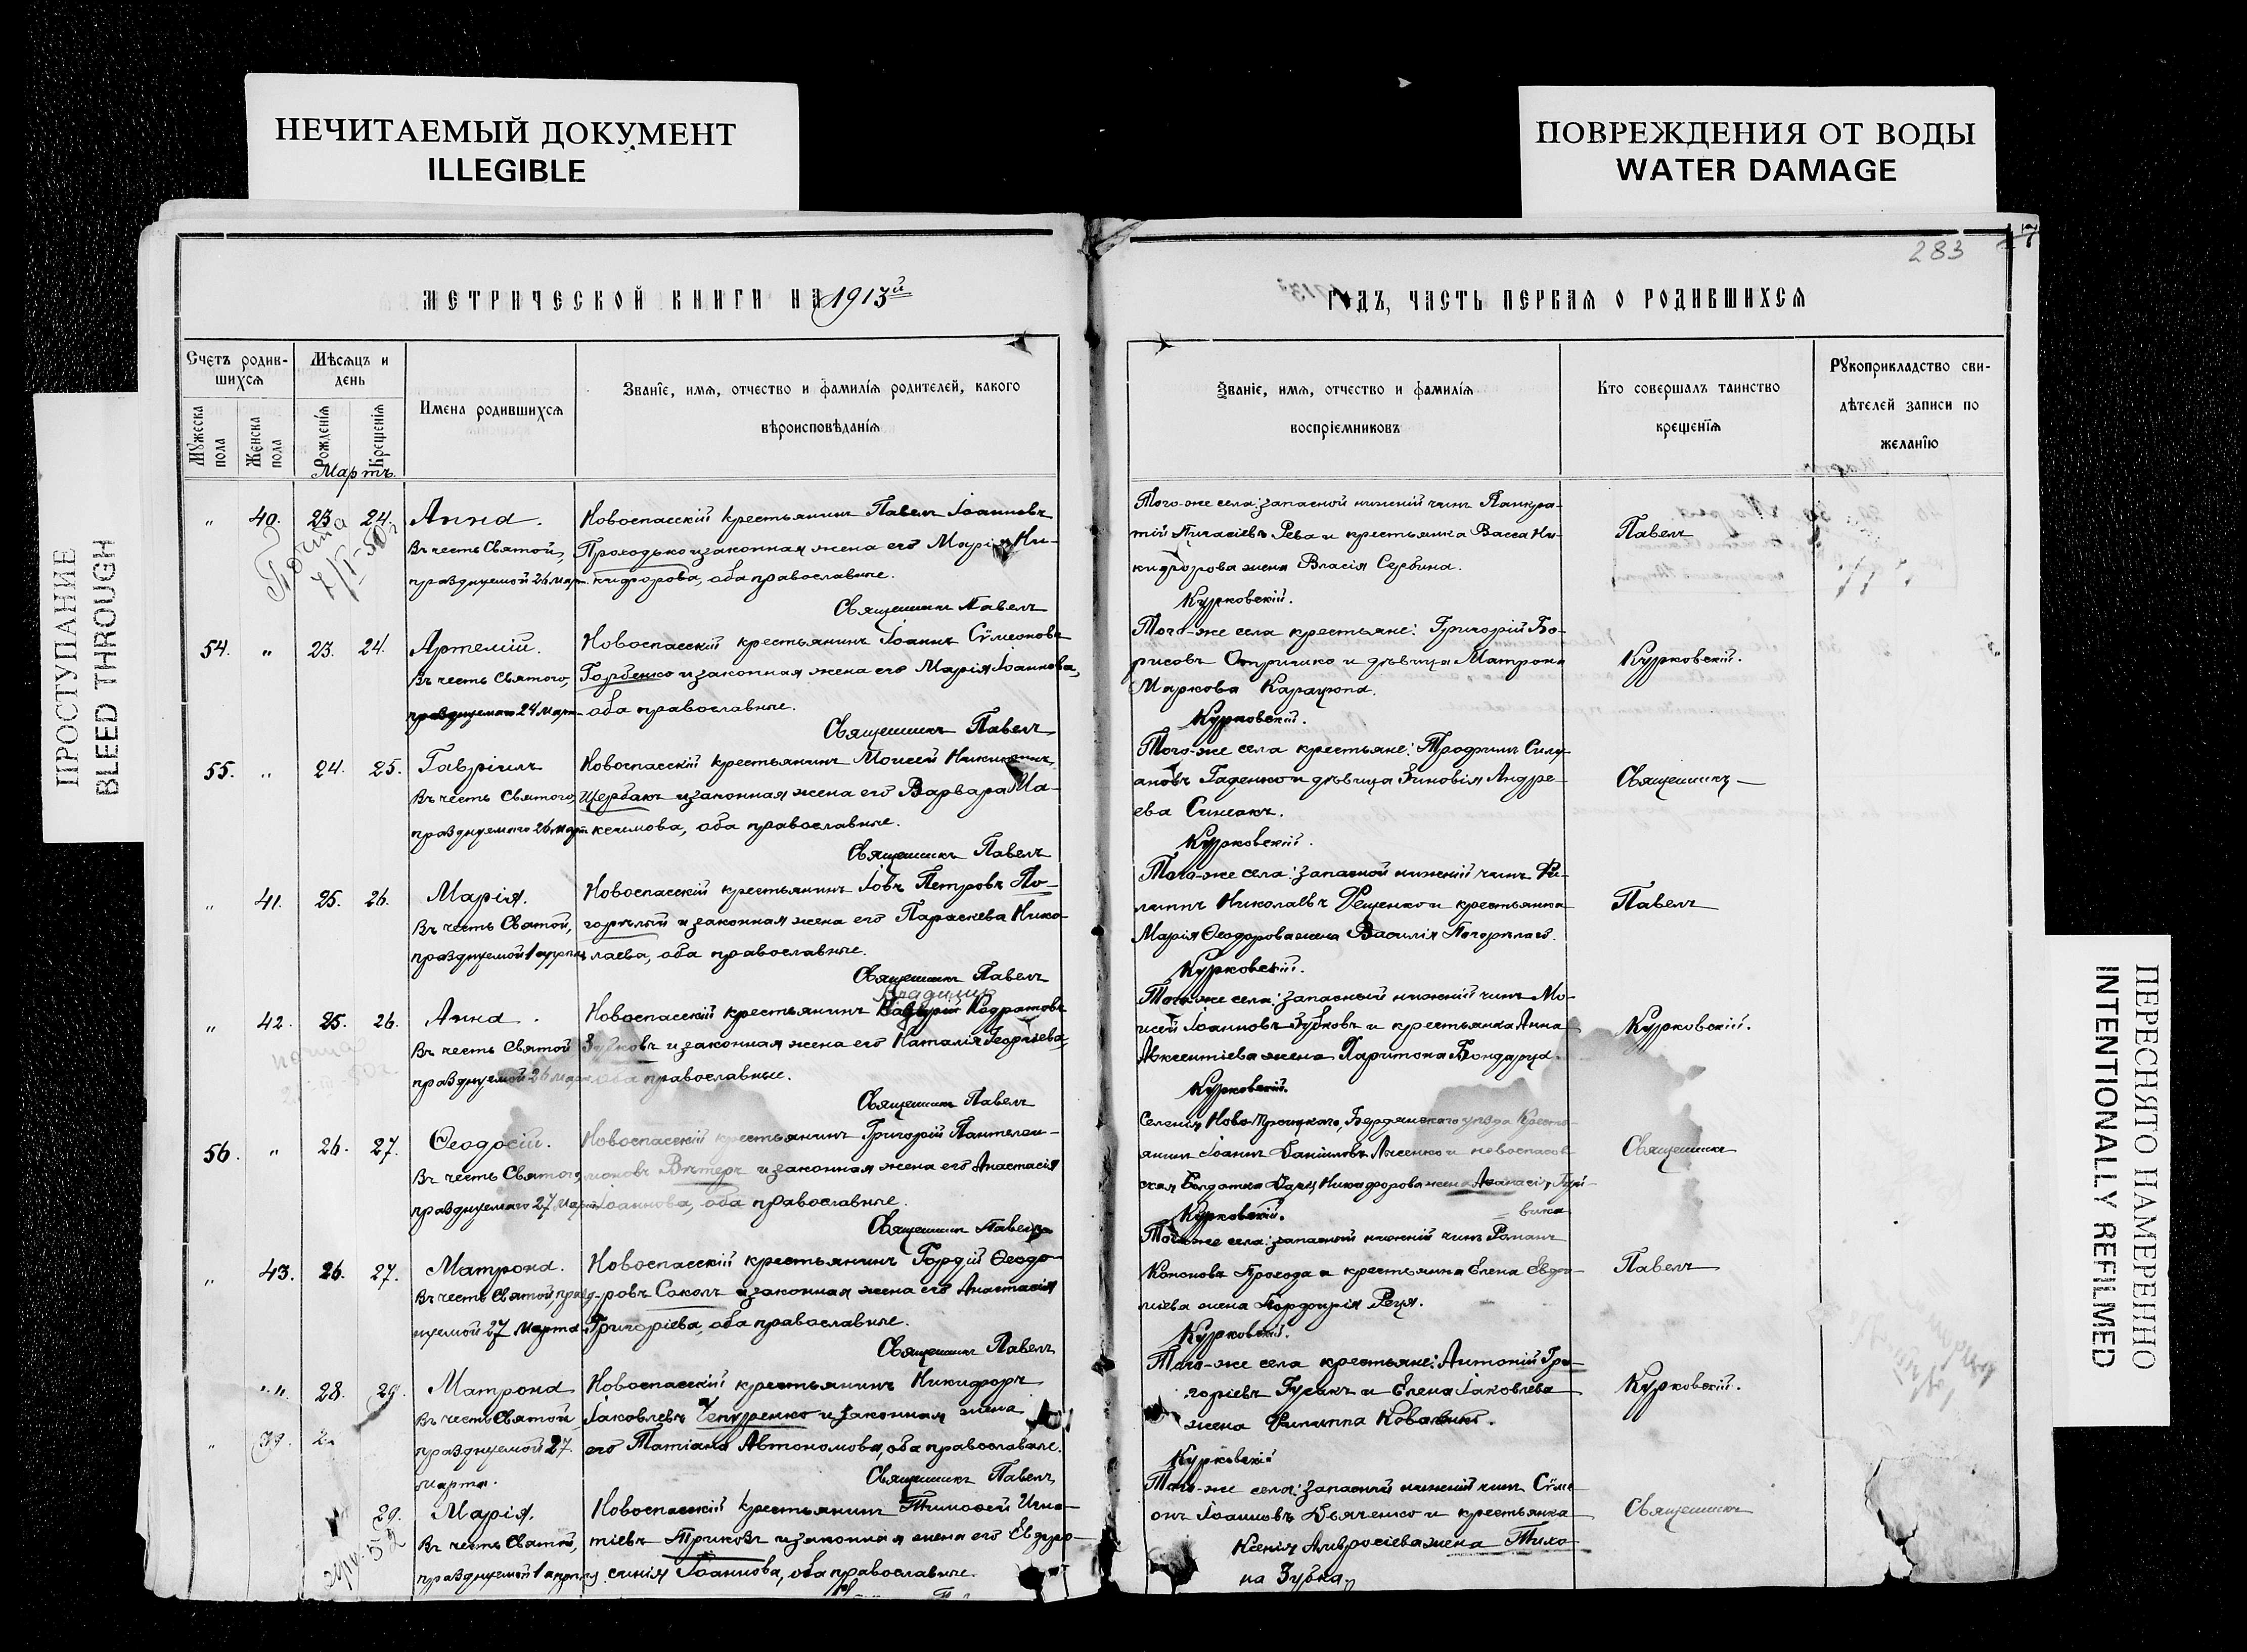 НЕЧИТАЕМЫЙ ДОКУМЕНТ
ILLEGIBLE
ПОВРЕЖДЕНИЯ ОТ ВОДЫ
WATER DAMAGE
ПРОСТУПАНИЕ
BLEED THROUGH
ПЕРЕСНЯТО НАМЕРЕННО
INTENTIONALLY REFILMED
283
МЕТРИЧЕСКОЙ КНИГИ НА 1913й
Счетъ родив-
шихся
Мѣсяцъ и
день
Мужеска пола
Женска пола
Рожденія
Крещенія
Имена родившихся
Званіе, имя, отчество и фамилія родителей, какого
вѣроисповѣданія
Мартъ.
" 40. 23 24. Анна. Новоспасскій крестьянинъ Павелъ Іоанновъ
Въ честь Святой, Проходько и законная жена его Марія Ни-
празднуемой 26 март. кифорова, оба православные.
Священникъ Павелъ
54. " 23. 24. Артемій. Новоспасскій крестьянинъ Іоаннъ Сѵмеоновъ
Въ честь Святого, Горбенко и законная жена его Марія Іоаннова,
празднуемаго 24 март. оба православные.
Священникъ Павелъ
55. " 24. 25. Гавріилъ Новоспасскій крестьянинъ Моисей
Въ честь Святого, Щербакъ и законная жена его Варвара Ма-
празднуемаго 26 март. ксимова, оба православные.
Священникъ Павелъ
" 41. 25. 26. Марія. Новоспасскій крестьянинъ Іовъ Петровъ По-
Въ честь Святой, горѣлый и законная жена его Параскева Нико-
празднуемой 1 апрѣля лаева, оба православные.
Священникъ Павелъ
" 42. 25. 26. Анна. Новоспасскій крестьянинъ Кодратовъ
Въ честь Святой Зубковъ и законная жена его Наталія Георгіева,
празднуемой 26 март. оба православные.
Священникъ Павелъ
56. " 26. 27. Ѳеодосій. Новоспасскій крестьянинъ Григорій Пантелеи-
Въ честь Святого, моновъ Вѣтеръ и законная жена его Анастасія
празднуемаго 27 март. Іоаннова, оба православные.
Священникъ Павелъ
" 43. 26. 27. Матрона. Новоспасскій крестьянинъ Гордій Ѳеодо-
Въ честь Святой, празд- ровъ Соколъ и законная жена его Анастасія
нуемой 27 марта. Григоріева, оба православные.
Священникъ Павелъ
" " 28. 29. Матрона Новоспасскій крестьянинъ Никифоръ
Въ честь Святой Іаковлевъ Чепуренко и законная жена
" 39. празднуемой 27 его Татіана Автономова, оба православные.
марта. Священникъ Павелъ
29. Марія. Новоспасскій крестьянинъ Тимоѳей Игна-
Въ честь Святой, тіевъ Триковъ и законная жена его Евдро-
празднуемой 1 апрѣля синія Іоаннова, оба православные.
ГОДЪ, ЧАСТЬ ПЕРВАЯ О РОДИВШИХСЯ
Званіе, имя, отчество и фамилія
воспріемниковъ
Кто совершалъ таинство
крещенія
Рукоприкладство сви-
дѣтелей записи по
желанію
Того-же села: запасной нижній чинъ Панкра-
тій Рева и крестьянка Васса Ни- Павелъ
кифорова жена Власія Сербина.
Курковскій.
Того-же села крестьяне: Григорій Бо-
рисовъ Отришко и дѣвица Матрона Курковскій.
Маркова
Курковскій.
Того-же села крестьяне: Трофимъ Силу-
ановъ Гаденко и дѣвица Зиновія Андре- Священникъ
ева Синеокъ.
Курковскій.
Того-же села: запасной нижній чинъ Фи-
липпъ Николаевъ Фещенко и крестьянка Павелъ
Марія Ѳеодорова жена Василія Погорѣлаго.
Курковскій.
Того-же села: запасный нижній чинъ Мо-
исей Іоанновъ Зубковъ и крестьянка Анна Курковскій.
Авксентіева жена Харитона
Курковскій.
Селенія Ново-Троицкаго, Бердянскаго уѣзда Кресть-
янинъ Іоаннъ Даніиловъ Лысенко и новоспасов- Священникъ
ская Солдатка Никифорова жена
Курковскій.
Того-же села: запасный нижній чинъ Романъ
Кононовъ Прохода и крестьянка Елена Евдо- Павелъ
жена Порфирія
Курковскій.
Того-же села крестьяне: Антоній Гри-
горіевъ Гусакъ и Елена Іаковлева Курковскій.
жена Филиппа
Курковскій
Того-же села: запасный нижній чинъ Сѵме-
онъ Іоанновъ Дьяченко и крестьянка Священникъ
Ксенія Амвросіева жена Тихо-
на Зубка.